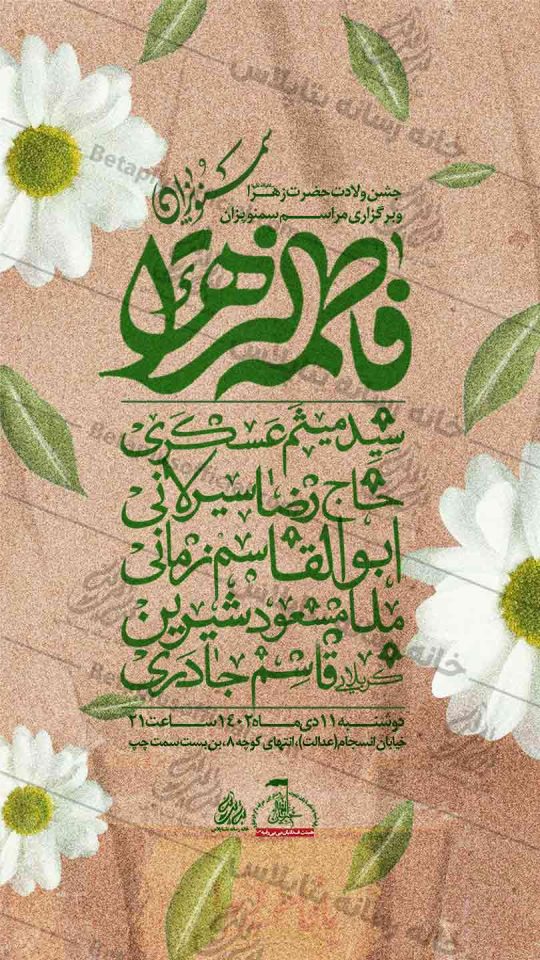 سمنوپزان
جشن ولادت حضرت زهرا
و برگزاری مراسم سمنوپزان
فاطمه زهرا
سید میثم عسکری
حاج رضا سیرلانی
ابوالقاسم زمانی
ملا مسعود شیرین
کربلایی قاسم جادری
دوشنبه ۱۱ دی ماه ۱۴۰۲ ساعت ۲۱
خیابان انسجام (عدالت)، انتهای کوچه ۸، بن بست سمت چپ
خانه رسانه بتاپلاس
خانه رسانه بتاپلاس
خانه رسانه بتاپلاس
خانه رسانه بتاپلاس